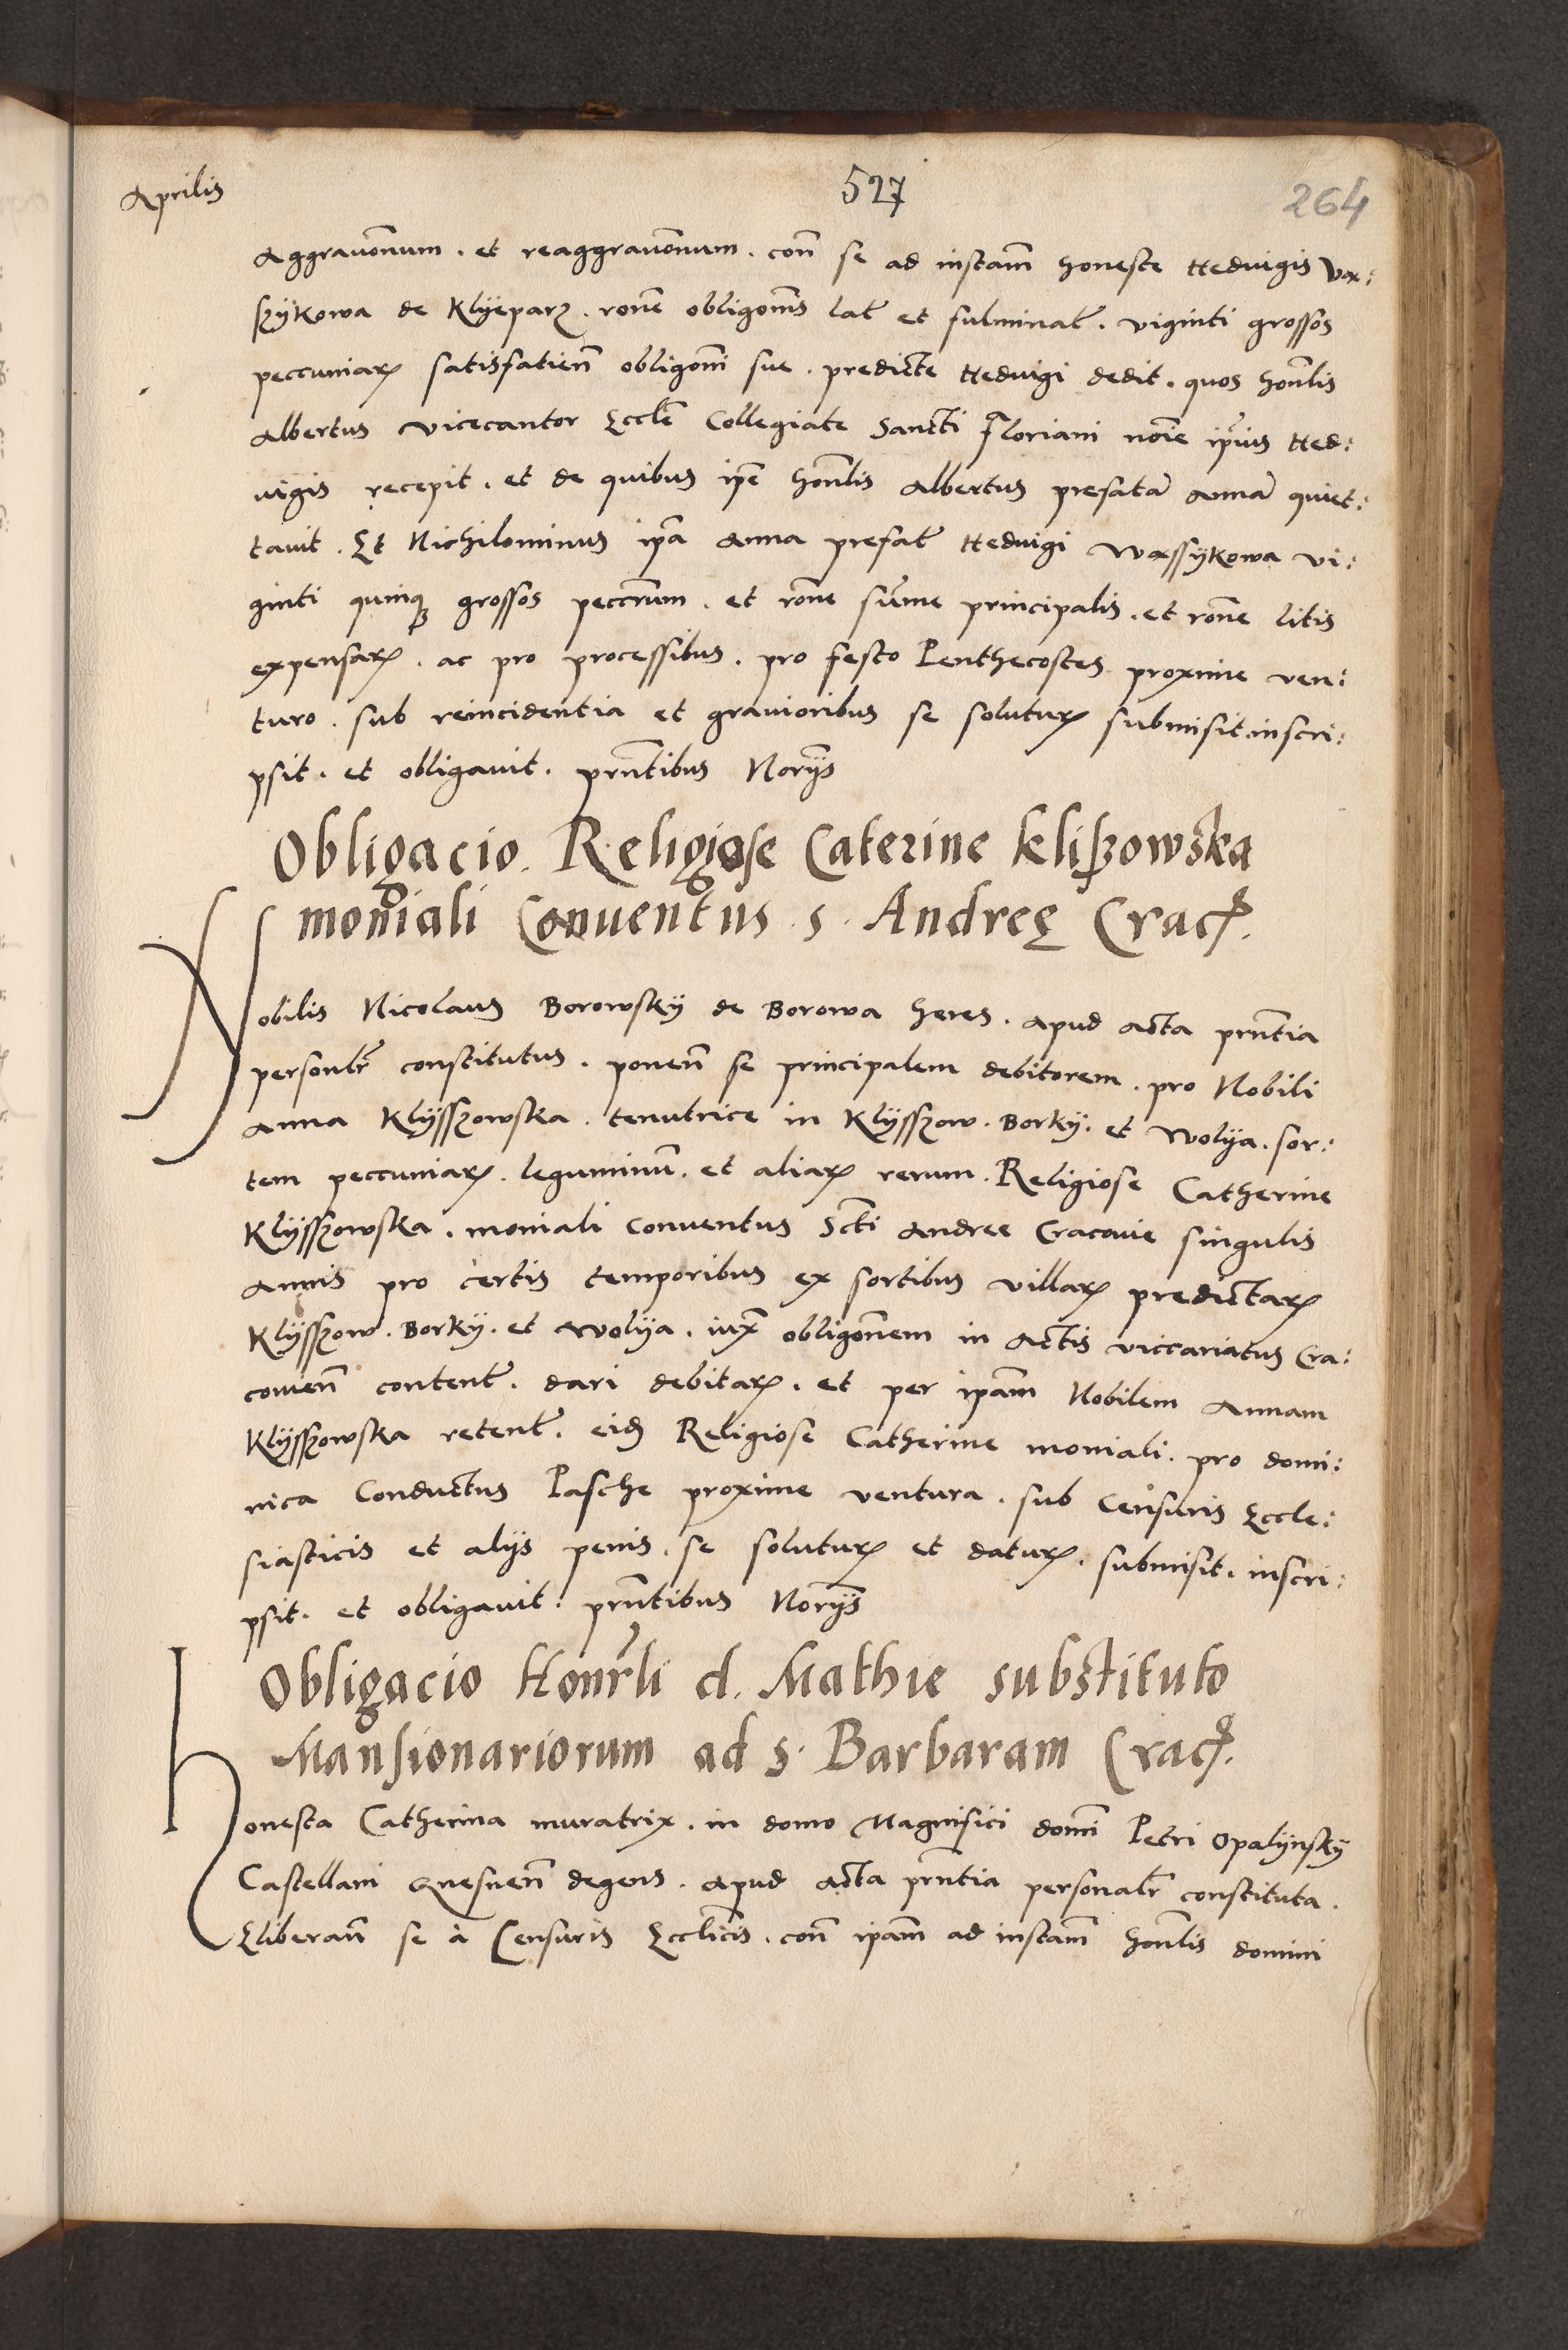 Aprilis
527
264
Aggrauoñnum . et reaggrauoñnum . coñ se ad instañ honeste Heduigis Vax:
szykowa de Klyeparz . roñe obligoñis lat̃ et fulminat̃ . viginti grossos
peccuniaꝝ satisfatieñ obligoñi sue . predicte Heduigi dedit . quos hoñlis
Albertus vicecantor Eccl̃e Collegiate Sancti Floriani noĩe ip̃ius Hed:
uigis recepit . et de quibus ip̃e hoñlis Albertus prefatã Annã quiet:
tauit . Et Nichilominus ip̃a Anna prefat̃ Heduigi Waxssykowa vi:
ginti quinqȝ grossos peccr̃um . et roñe sum̃e principalis . et roñe litis
expensaꝝ . ac pro processibus . pro festo Penthecostes proxime ven:
turo . sub reincidentia et grauioribus se soluturꝝ submisit . inscri:
psit . et obligauit . prñtibus Noriȷs
Obligacio . Religiose Caterine kliszowska
moniali Conuentus . s . Andreę Crac̃.
Nobilis Nicolaus Borowsky de Borowa heres . apud acta prñtia
personlr̃ constitutus . poneñ se principalem debitorem . pro Nobili
Anna Klysszowska . tenutrice in Klysszow . Borky . et Wolya . sor:
tem peccuniaꝝ . leguminũ . et aliaꝝ rerum . Religiose Catherine
Klysszowska . moniali Conuentus Scti Andree Cracouie singulis
Annis pro certis temporibus ex sortibus villaꝝ predictaꝝ
Klysszow . Borky . et Wolya . iuxͭ obligoñem in Actis viccariatus Cra:
couieñ content̃ . dari debitaꝝ . et per ip̃am Nobilem Annam
Klysszowska retent̃ . eidȝ Religiose Catherine moniali . pro domi:
nica Conductus Pasche proxime ventura . sub Censuris Eccle:
siasticis et alijs penis . se soluturꝝ et daturꝝ . submisit . inscri:
psit . et obligauit . prñtibus Norijs
Obligacio Honr̃li d. Mathie substituto
Mansionariorum ad s. Barbaram Crac̃.
Honesta Catherina muratrix . in domo Magnifici domĩ Petri Opalynsky
Castellani Gnesneñ degens . apud acta prñtia personalr̃ constituta .
Eliberañ se à Censuris Eccl̃icis . coñ ip̃am ad instañ hoñlis domini